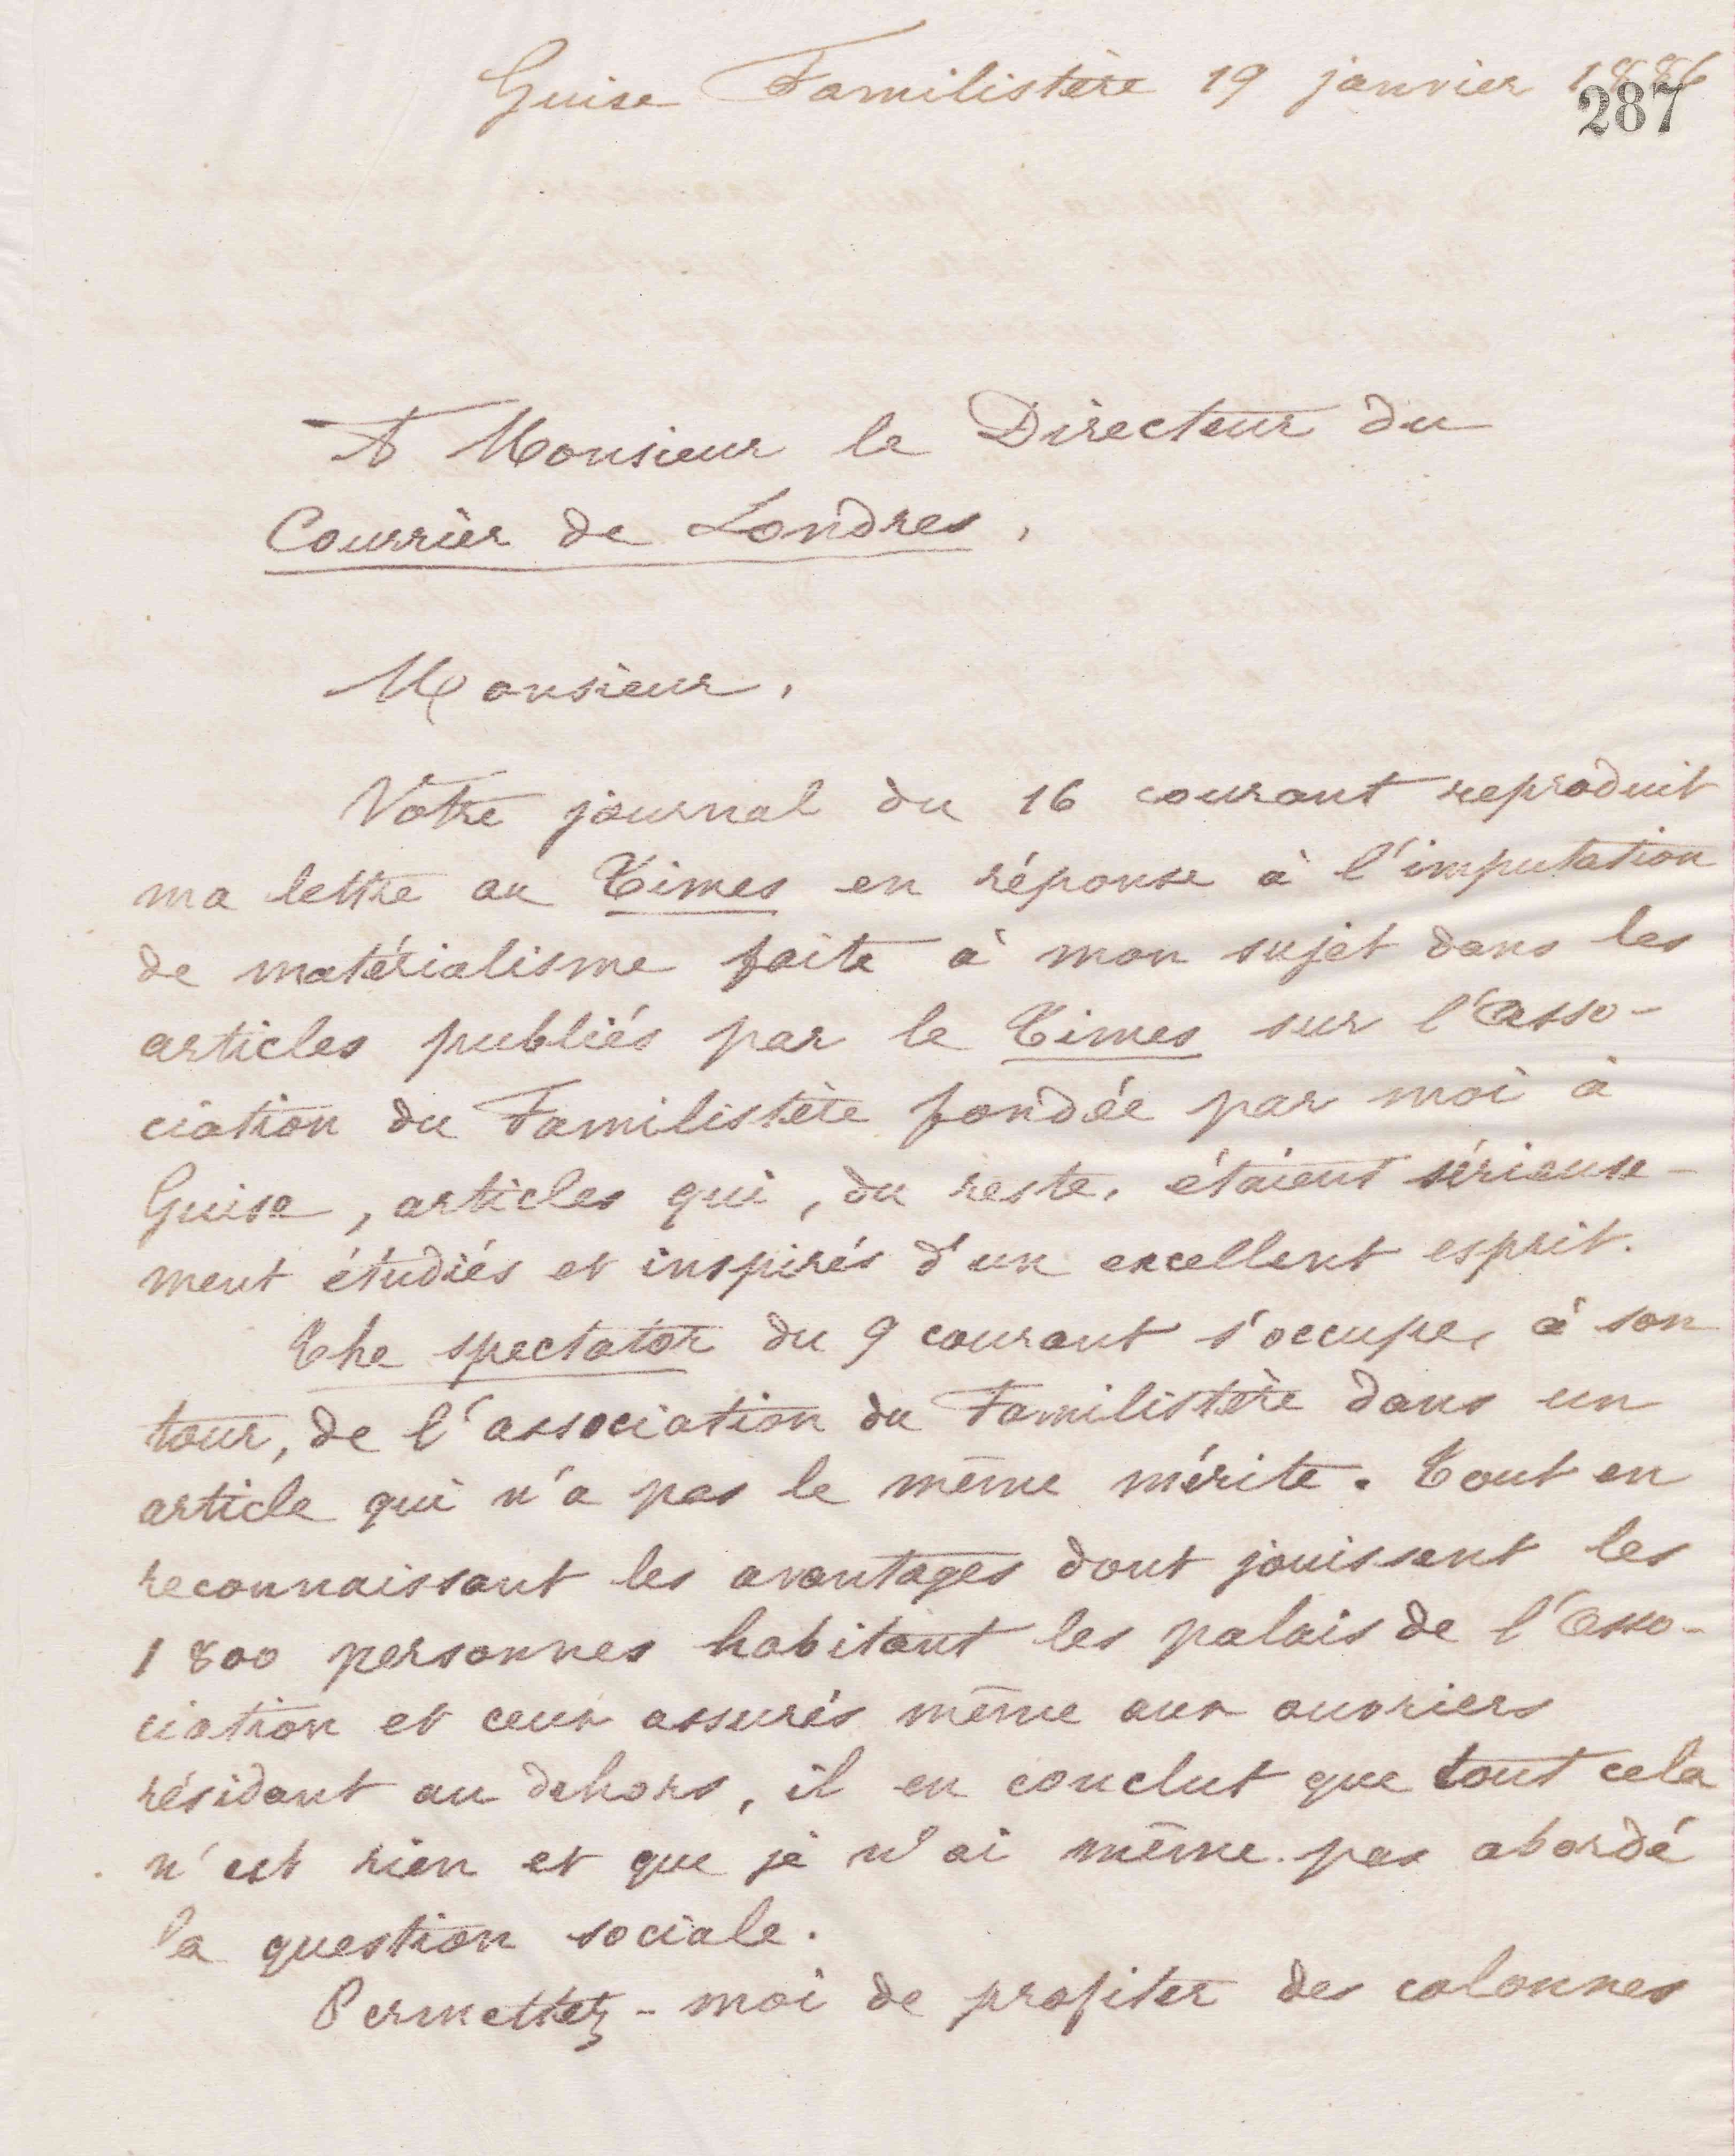 Guise Familistère 19 janvier 1886
287
A Monsieur le Directeur du
Courrier de Londres,
Monsieur,
Votre journal du 16 courant reproduit
ma lettre au Times en réponse à l'imputation
de matérialisme faite à mon sujet dans les
articles publiés par le Times sur l'asso-
ciation du Familistère fondée par moi à
Guise, articles qui, du reste, étaient sérieuse-
ment étudiés et inspirés d'un excellent esprit.
The spectator du 9 courant s'occupe, à son
tour, de l'association du Familistère dans un
article qui n'a pas le même mérite. Tout en
reconnaissant les avantages dont jouissent les
1800 personnes habitant les palais de l'Asso-
ciation et ceux assurés même aux ouvriers
résidant au dehors, il en conclut que tout cela
n'est rien et que je n'ai même pas abordé
la question sociale.
Permettez-moi de profiter des colonnes